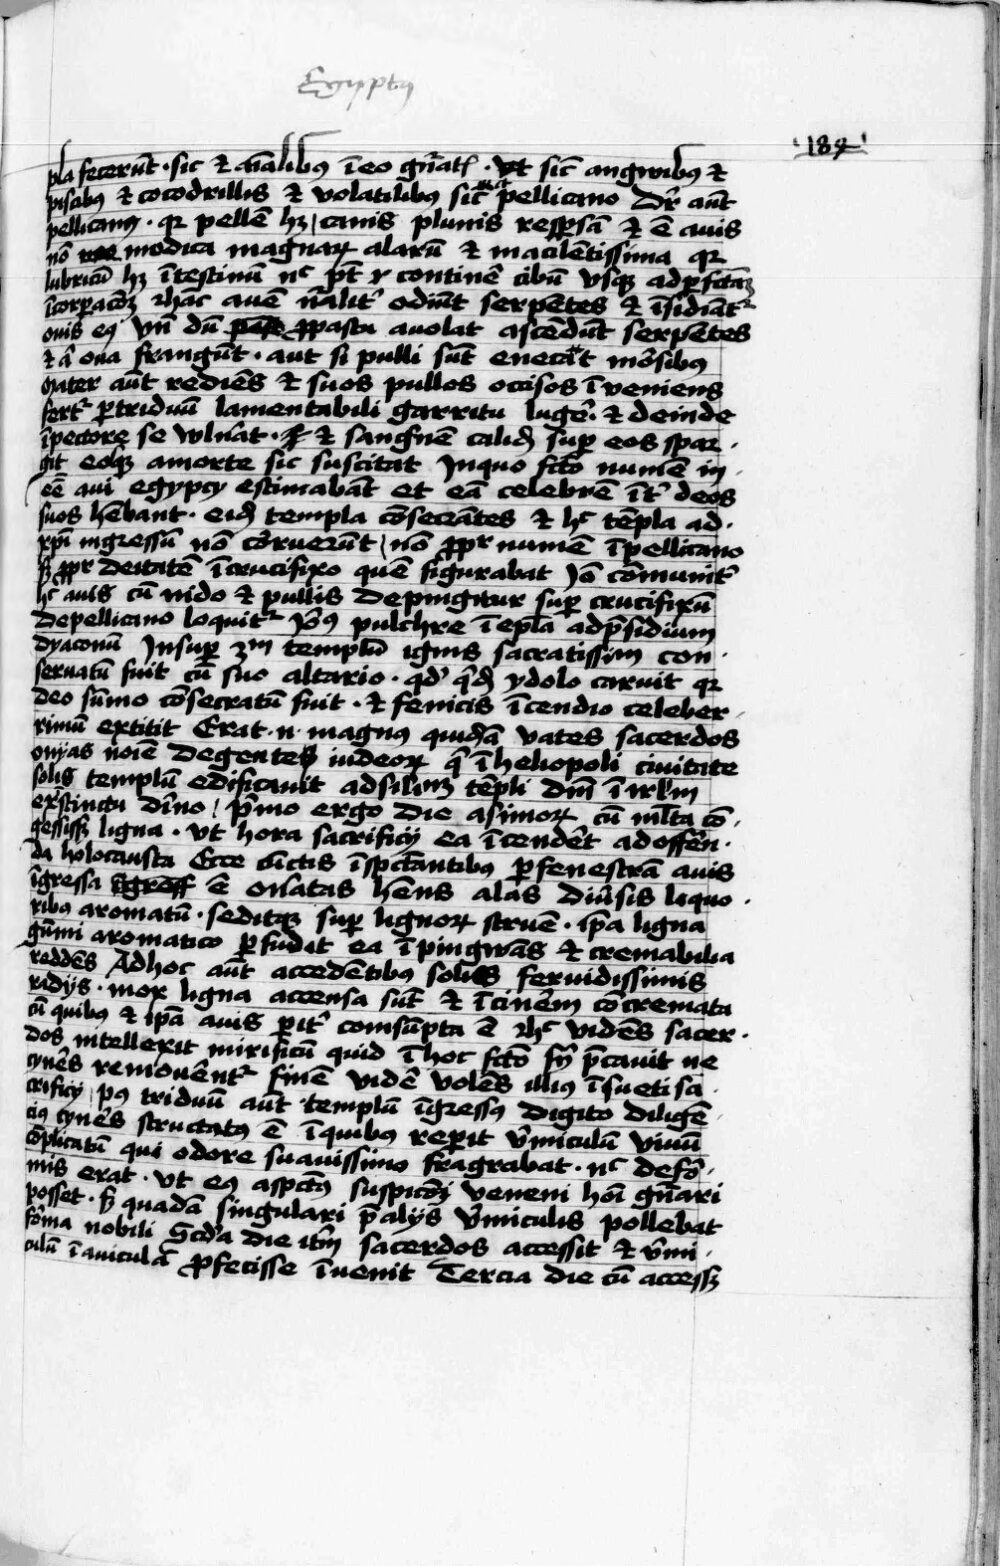 Egyptus
184
pla fecerūt · sic et aīalibus ī eo gn̄at · Ut sic̄ angwibus et
piscibus et cocodrillis et volatilibus sic̄ pellicano Dr̄ aūt
pellicanus · qr pellē hz canis plumis resp̱sā et ē auis
nō modica magnarꝝ alarū et macilētissima qr
lubricū hz ītestinū nc pt̄ continē cibū vsqꝫ ad
hāc auē nāliter odiūt serpētes et īsidiātr
ouis eꝰ Vn̄ dū ꝓ pastu auolat ascēdūt serpētes
et ova frangūt · aut si pulli sūt enecāt mōsibus
Mater aūt rediēs et suos pullos occisos īveniens
fertr ꝑ triduū lamentabili garritu lugē · et deinde
ī pectore se vlnāt · et sangnē calid suꝑ eos spar ·
git eosqꝫ a morte sic suscitat In quo fctō numē in ·
eē aui egypcy estimabāt et eā celebrē īt deos
suos hēbant · eid templa cōsecrātes et hc tēpla ad ·
xpi ingressū nō cōrruerūt nō ꝓpr numē ī pellicano
sꝫ ꝓpr deitatē ī crucifixo quē figurabat Iō cōmunitr
hc auis cū nido et pullis depingitur suꝑ crucifixū
De pellicano loquitr pulchre ī epla ad p̄sidium
dyaconū Insuꝑ templū ignis sacratissim con ·
seruatū fuit cū suo altario · qd ydolo caruit qr
deo sūmo cōsecratū fuit · et fenicis īcendio celeber
rimū extitit Erat · n · magnus quidā vates sacerdos
onyas noīe degentes iudeorꝝ q̄ ī heliopoli ciuitate
solis templū edificauit ad silīm tēpli dnī ī irlm
exstinctu dīno p̄mo ergo die asimorꝝ cū mlta cō ·
gessisꝫ ligna · Ut hora sacrificy ea īcendēt ad offēn ·
da holocausta Ecce cūctis īspctantibus ꝑ fenestrā auis
īgressa ē onustas hēns alas diūsis liquo ·
ribus aromatū · seditqꝫ suꝑ lignorꝝ struē · ip̄a ligna
gūmi aromatico ꝑfudit ea īpingwās et cremabilia
reddēs Ad hoc aūt accedētibus solis feruidissimis
radys · mox ligna accensa sūt et ī cinēm cōcremata
cū quibus et ip̄a auis ꝑit cōnsūpta ē hc vidēs sacer ·
dos intellexit mirificū quid ī hoc fctō p̄cauit ne
cynēs remouēntr finē vidē volēs illius īsueti sa ·
crificy pꝰ triduū aūt templū īgressꝰ digito diligē ·
cius cynēs scructatus ē ī quibus reꝑit v̄miculū viuū
cōplicatū qui odore suauissimo fragrabat · nc defō ·
mis erat · Ut eꝰ aspctus suspicōi veneni gn̄ari
posset · sꝫ quadā singulari p̄ alys v̄miculis pollebat
fōma nobili Scd̄a die itm̄ sacerdos accessit et v̄mi ·
culū ī auiculā ꝓfecisse īvenit Tercia die cū accessꝫ